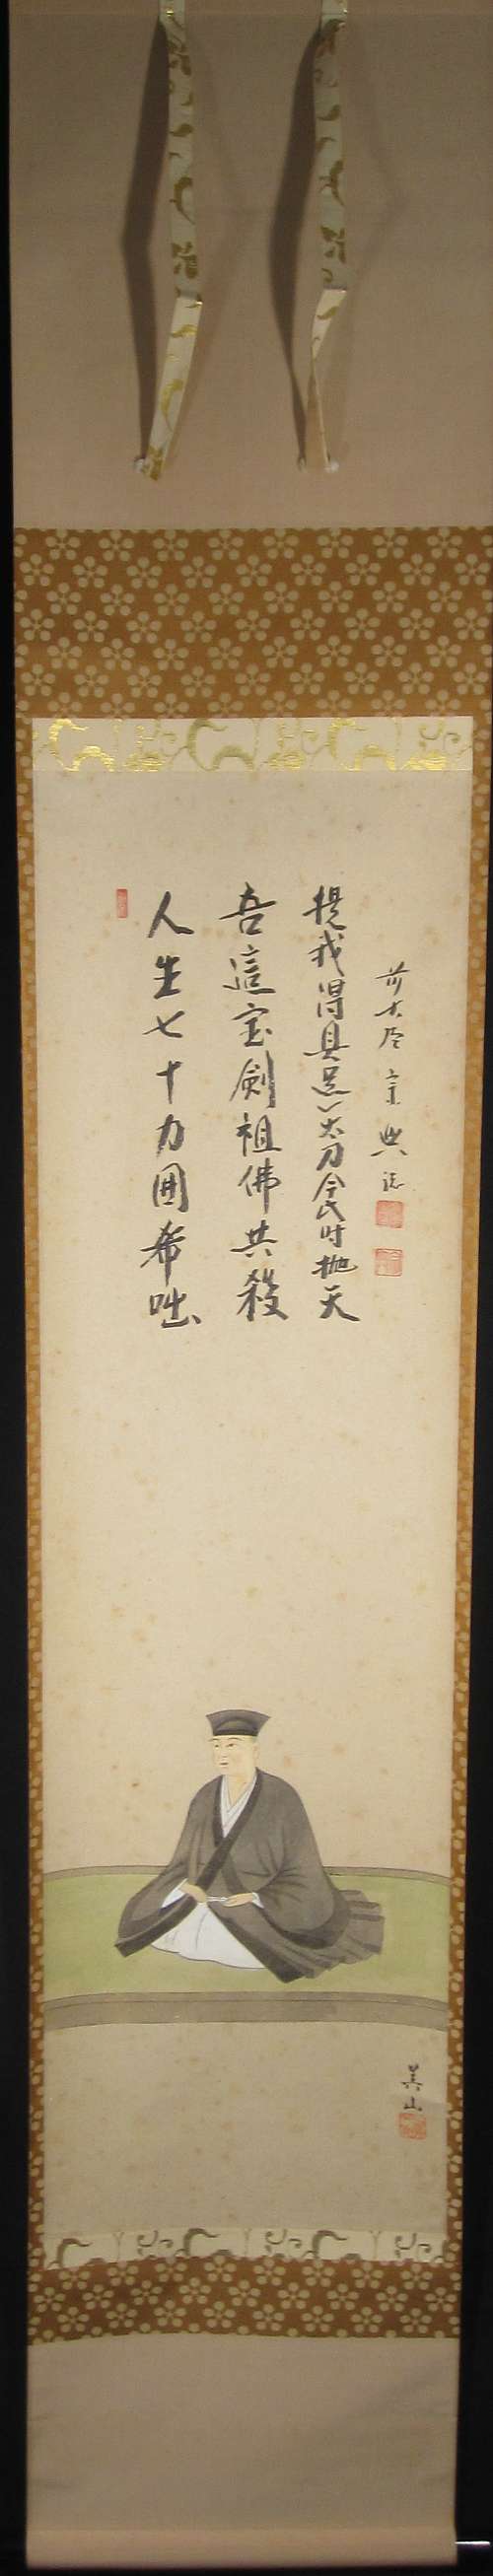 人生七十力囲希咄
吾這宝剣祖佛共殺
提我得具足一太刀今此時抛天
前大徳 宗典 誌
美山